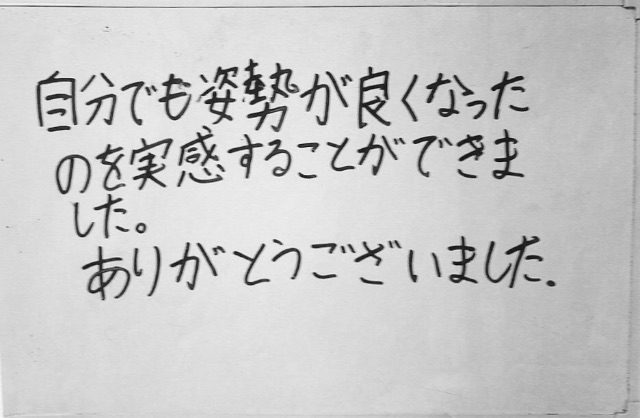 自分でも姿勢が良くなった
のを実感することができま
した。
ありがとうございました.